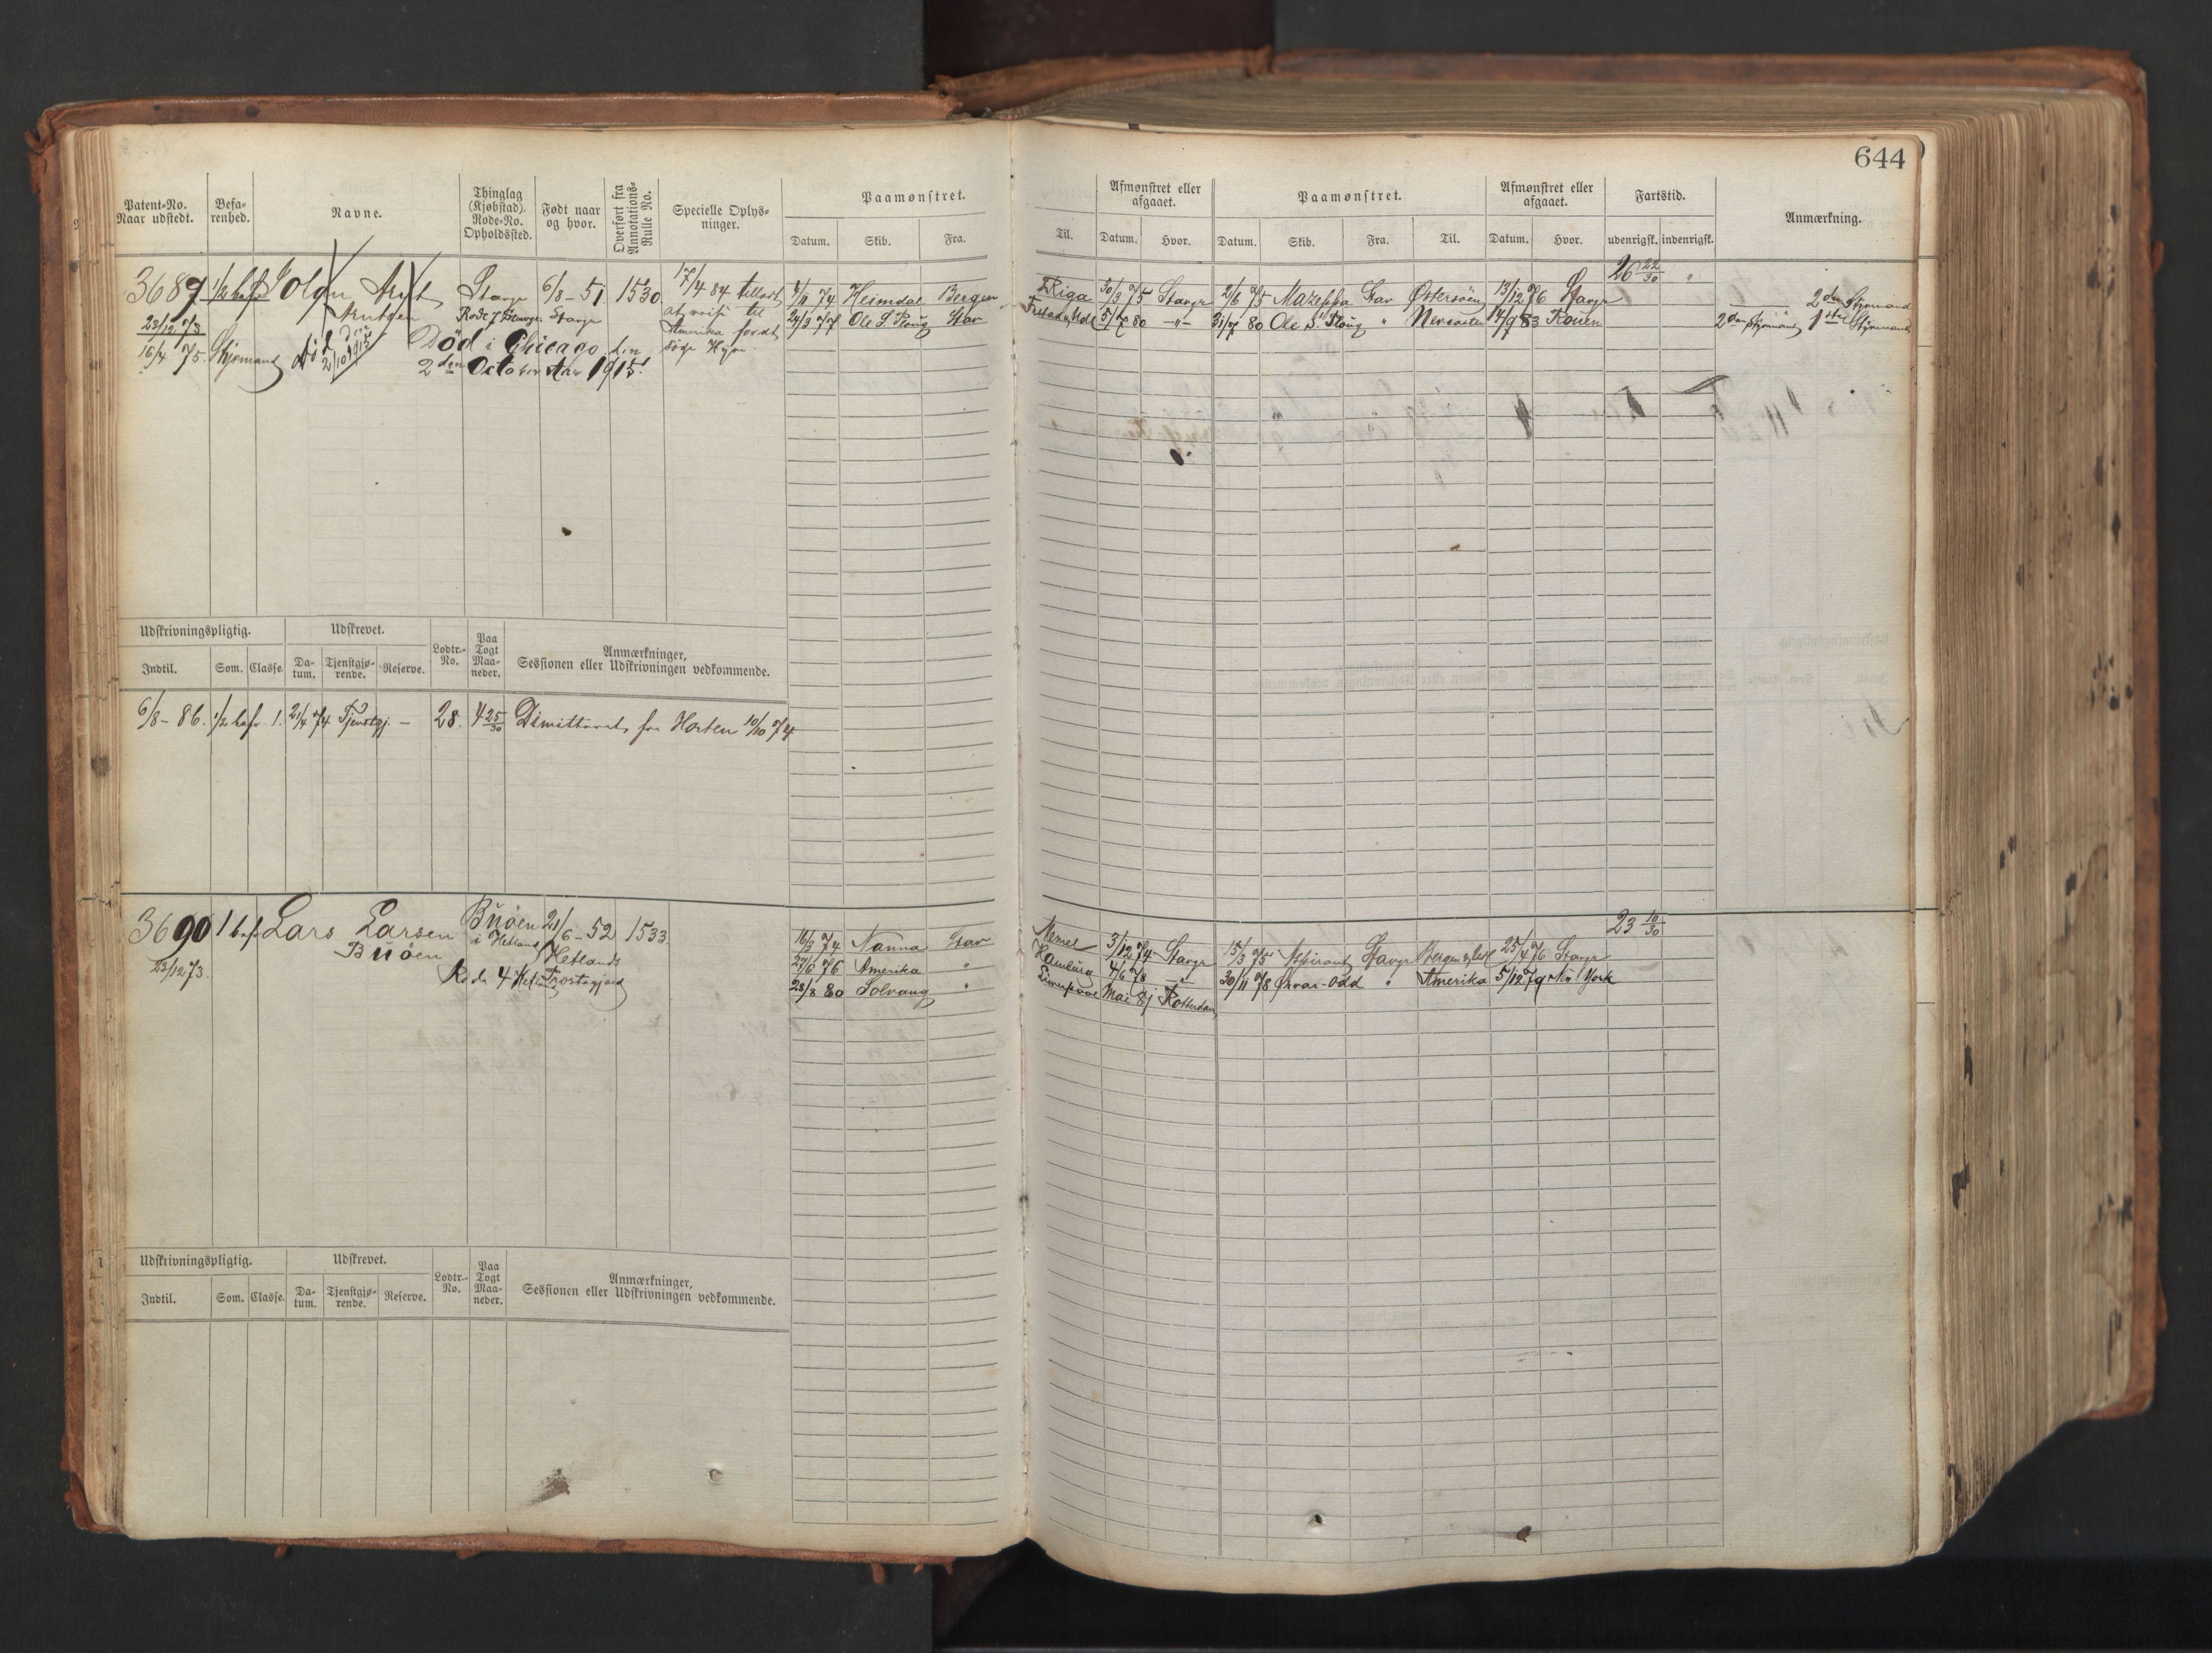 644
Patent-No. Naar udstedt.
Befa-renhed.
Navne.
Thinglag (Kjøbstad). Rode-No. Opholdssted.
Født naar og hvor.
Overført fra Annotations-Rulle No.
Specielle Oplys-ninger.
Paamønstret.
Datum. Skib. Fra.
Til.
Afmønstret eller afgaaet.
Datum. Hvor.
Paamønstret.
Datum. Skib. Fra. Til.
Afmønstret eller afgaaet.
Datum. Hvor.
Fartstid.
udenrigsk. indenrigsk.
Anmærkning.
3689 1/2 bef
23/12 73
16/4 75. Styrmand
død 2/10 1915
Stavgr
Rode 7 Stavgr.
6/8-51
Stavgr
1530.
17/4 84 tilladt
at reise til
Amerika for at
søge Hyre.
Død i Chicago den
2den October Aar 1915.
11 74 Heimdal Bergen
77 Ole S Ploug Stav
Riga 30/3 75 Stavgr 2/6 75 Mazeppa Stav Østersøen 13/12 76 Stavgr
5/7 80 -"- 31/7 80 Ole S. Ploug " 14/9 83 Rouen
26 22/30 "
2den Styrmand
2den Styrmand 1ste Styrmand
Udskrivningspligtig.
Indtil. Som. Classe.
Udskrevet.
Da-tum. Tjenstgjø-rende. Reserve.
Lodtr.-No.
Paa Togt Maa-neder.
Anmærkninger, Sessionen eller Udskrivningen vedkommende.
6/8-86. 1/2 bef. 1. 21/4 74 Tjenstgj. - 28. 4 25/30 Dimitteret fra Horten 10/10 74
3690 1 bef. Lars Larsen
Buöen
23/12 73.
Buöen
i Hetland
Rode 4 Hetland
21/6-52
Hetland
1533.
16/3 74 Nanna Stav
27/6 76 Amerika "
28/8 80 Solvang "
Memel 3/12 74 Stavgr 15/3 75 Aspirant Stavgr 25/4 76 Stavgr
Hamburg 4/6 78 " 30/11 78 Ørvar-Odd " Amerika 5/12 79 New York
Liverpool Mai 81 Rotterdam
23 10/30
Udskrivningspligtig.
Indtil. Som. Classe.
Udskrevet.
Da-tum. Tjenstgjø-rende. Reserve.
Lodtr.-No.
Paa Togt Maa-neder.
Anmærkninger, Sessionen eller Udskrivningen vedkommende.